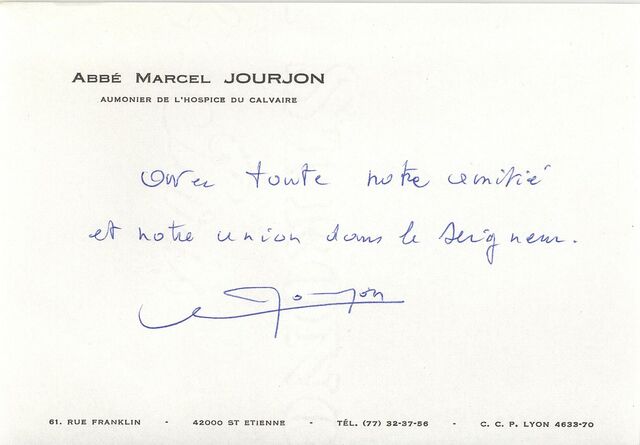 ABBÉ MARCEL JOURJON
AUMONIER DE L'HOSPICE DU CALVAIRE
Avec toute notre amitié
et notre union dans le Seigneur.
Jourjon
61. RUE FRANKLIN - 42000 ST ETIENNE - TÉL. (77) 32-37-56 - C. C. P. LYON 4633-70